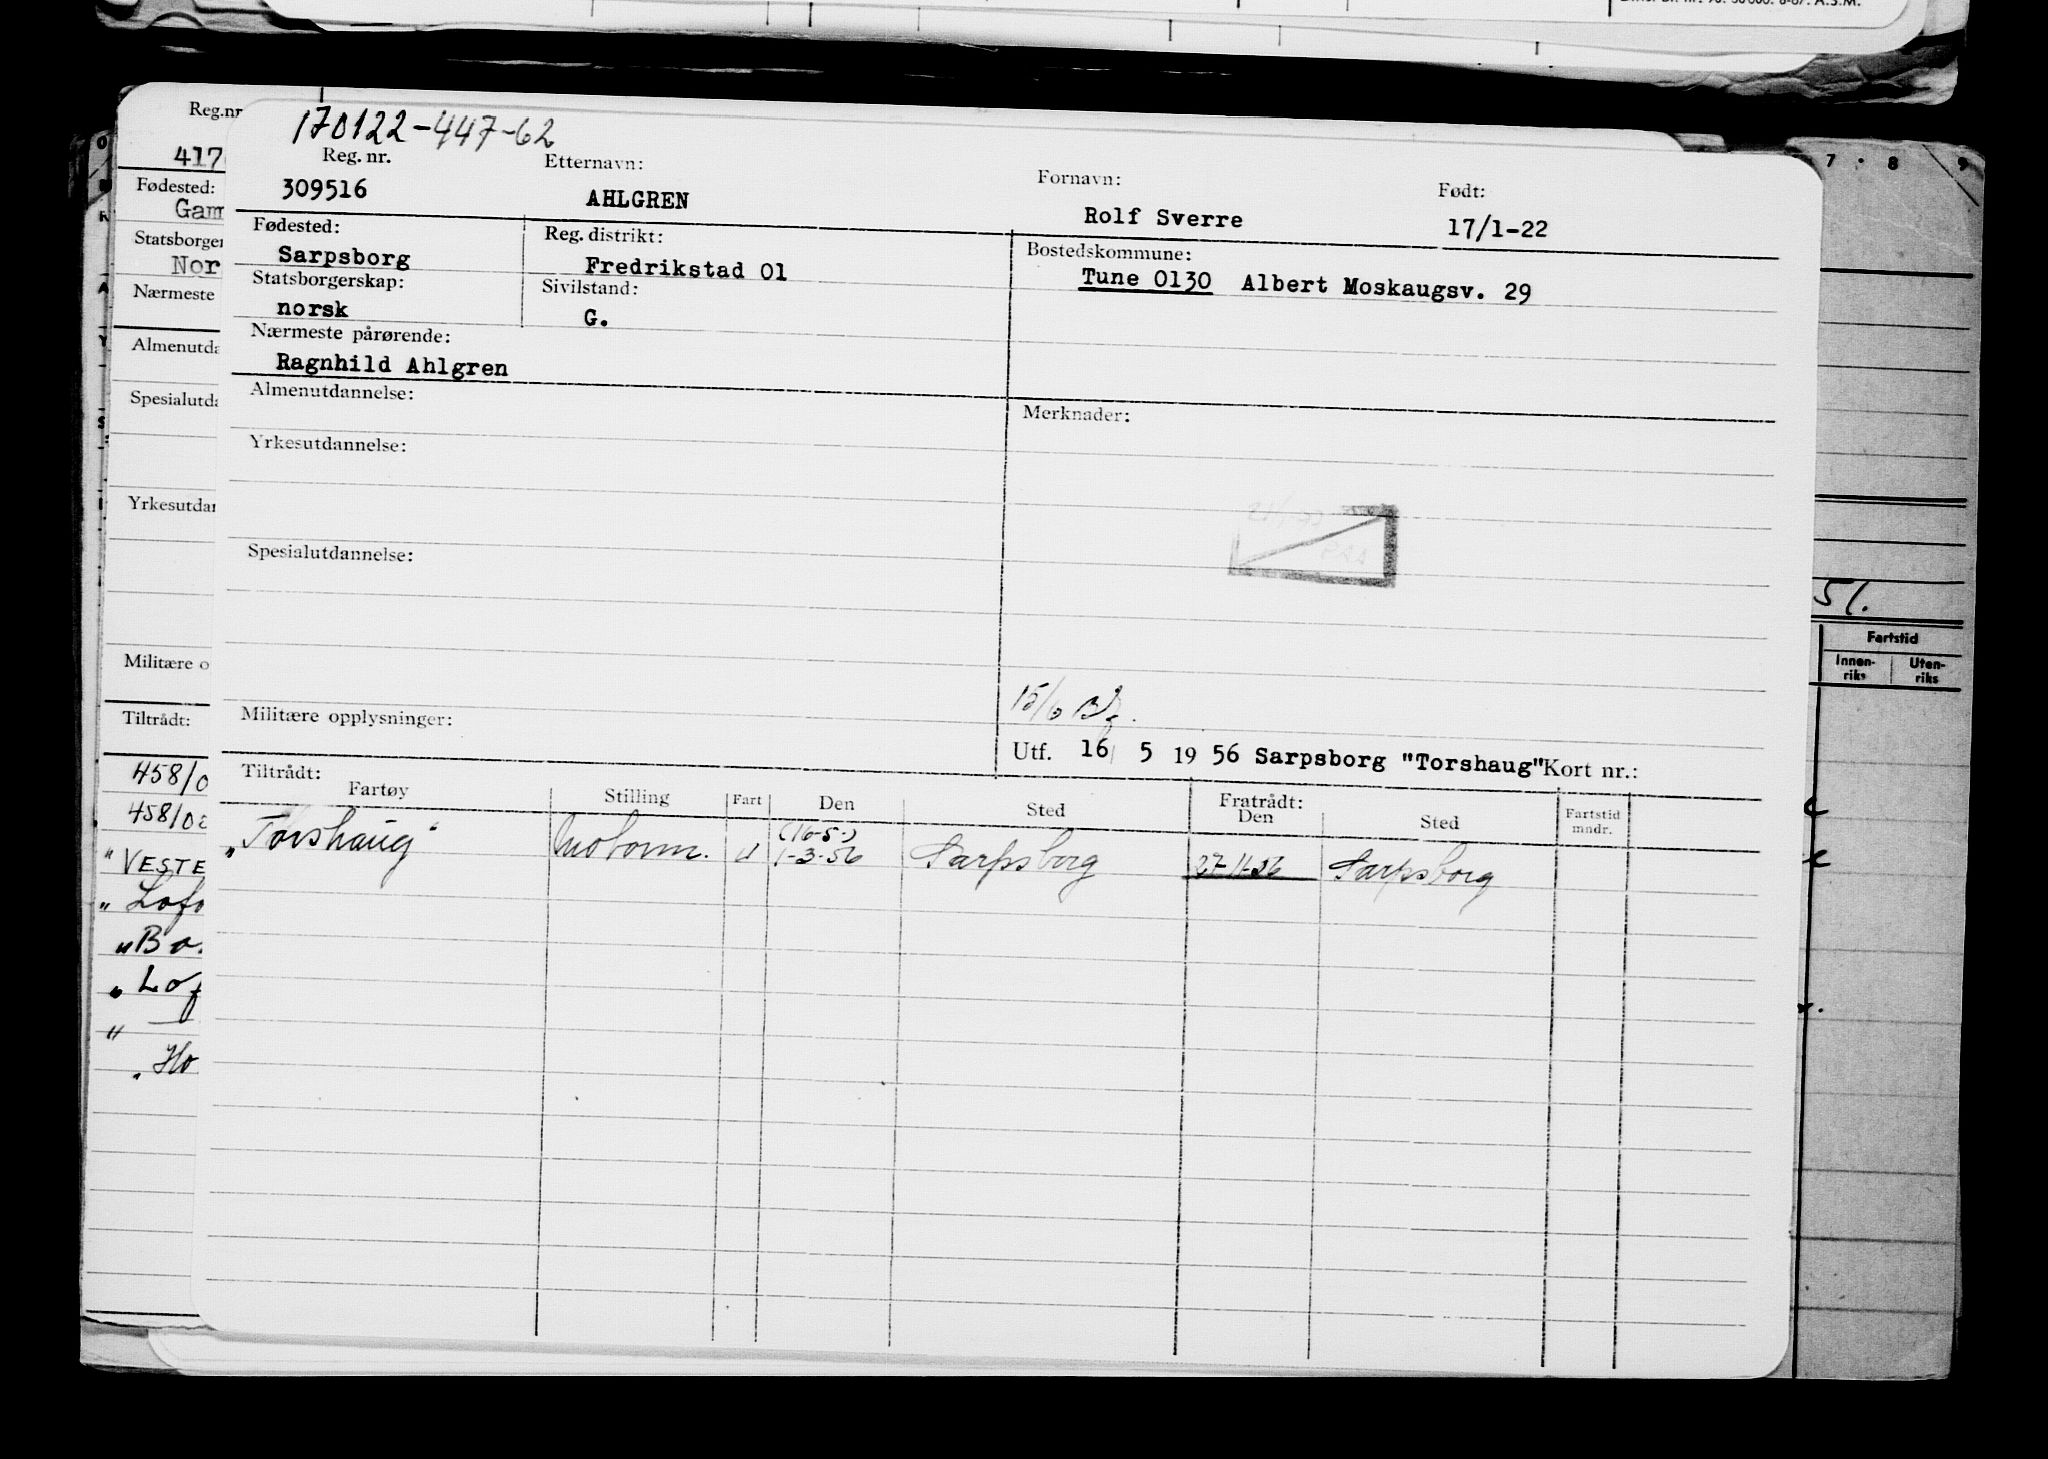 170122-447-62
Reg. nr. Etternavn: Fornavn: Født:
309516 AHLGREN Rolf Sverre 17/1-22
Fødested: Reg. distrikt: Bostedskommune:
Sarpsborg Fredrikstad 01 Tune 0130 Albert Moskaugsv. 29
Statsborgerskap: Sivilstand:
norsk G.
Nærmeste pårørende:
Ragnhild Ahlgren
Almenutdannelse: Merknader:
Yrkesutdannelse:
Spesialutdannelse:
Militære opplysninger:
Utf. 16 5 19 56 Sarpsborg "Torshaug" Kort nr.:
Tiltrådt: Fratrådt:
Fartøy Stilling Fart Den Sted Den Sted Fartstid mndr.
(16-5-)
"Torshaug" Motorm. U 1-3-56 Sarpsborg 27-11-56 Sarpsborg
Reg.nr
417
Fødested:
Gam
Statsborger
Nor
Nærmeste
Almenutda
Spesialutda
Yrkesutdan
Militære o
Tiltrådt:
458/0
458/02
"VESTE
"Lofo
"Ba
"Lof
"
"Ho
7 · 8 9
51.
Fartstid
Innen-
riks
Uten-
riks